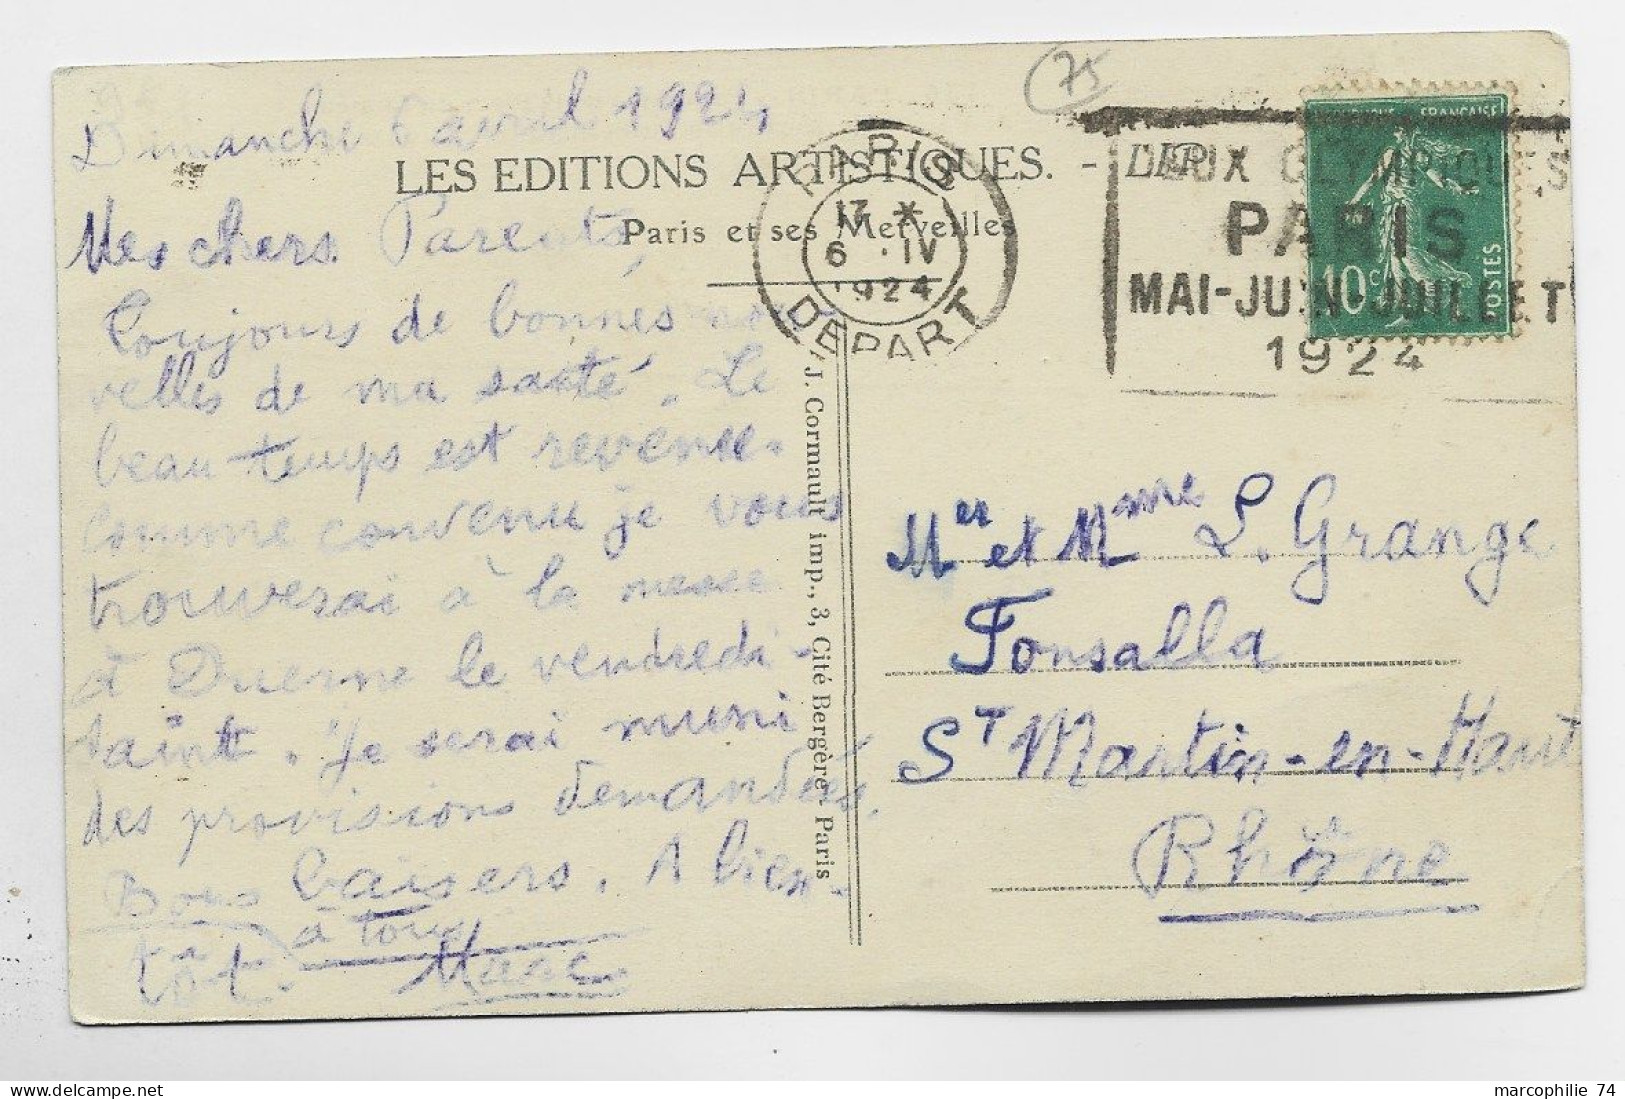 75
Dimanche 6 avril 1924
LES EDITIONS ARTISTIQUES. - LIP
Paris et ses Merveilles
Mes chers Parents,
Toujours de bonnes nou
velles de ma santé. Le
beau temps est revenu.
Comme convenu je vous
trouverai à la messe
à Duerne le vendredi-
saint. Je serai muni
des provisions demandées.
Bons baisers. A bien-
à tous
tôt.
Marc
PARIS
17 *
6 . IV
1924
DEPART
JEUX OLYMPIQUES
PARIS
MAI-JUIN-JUILLET
1924
FRANÇAISE
10c
POSTES
J. Cormault imp., 3, Cité Bergère - Paris
Mer et Mme L. Grange
Fonsalla
St Martin-en-Haut
Rhône
marcophilie 74